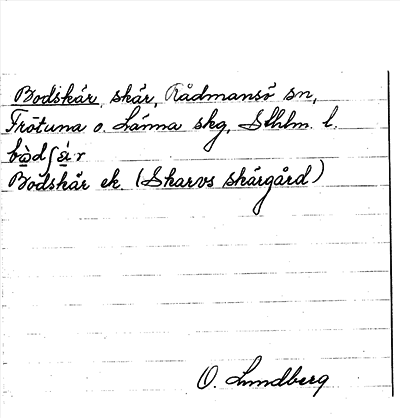 Bodskär, skär, Rådmansö sn,
Frötuna o. Länna skg, Sthlm. l.
Bodskär ek. (Skarvs skärgård)
O. Lundberg